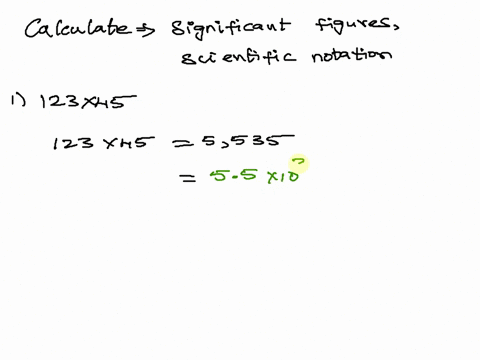 Calculate ⇒ Significant figures,
scientific notation
1) 123×45
123 ×45 = 5,535
= 5.5 ×10